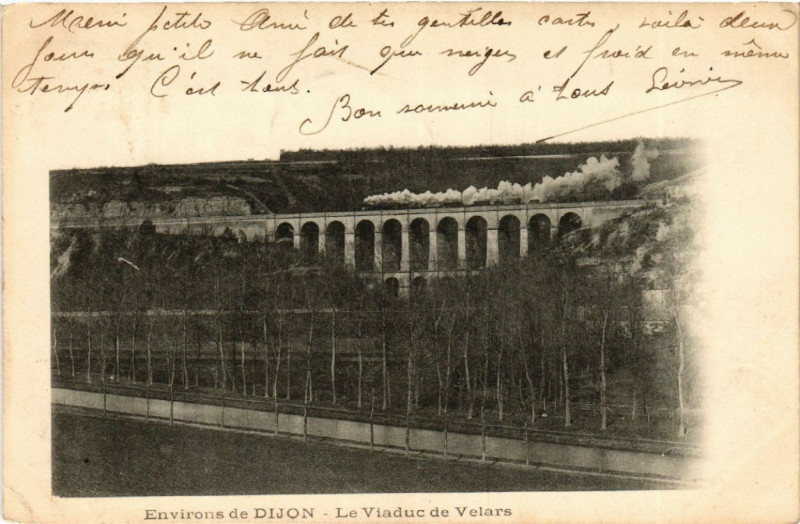 Merci petite Amie de tes gentilles cartes, voilà deux
jours qu'il ne fait que neiger et froid en même
temps. C'est tous.
Bon souvenir à tous
Environs de DIJON - Le Viaduc de Velars